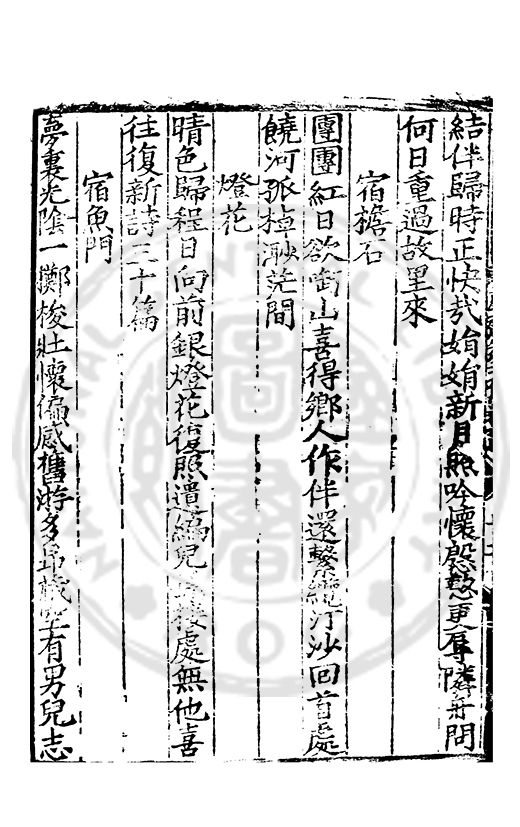 結伴歸時正快哉娟娟新月照吟懷慇懃更辱隣舟問
何日重過故里來
宿檐石
團團紅日欲啣山喜得鄉人作伴還繫纜汀沙回首處
饒河孤棹渺茫間
燈花
晴色歸程日向前銀燈花復照遺編兒接處無他喜
往復新詩三十篇
宿魚門
夢裏光陰一擲梭壯懷偏感舊遊多印藏空有男兒志